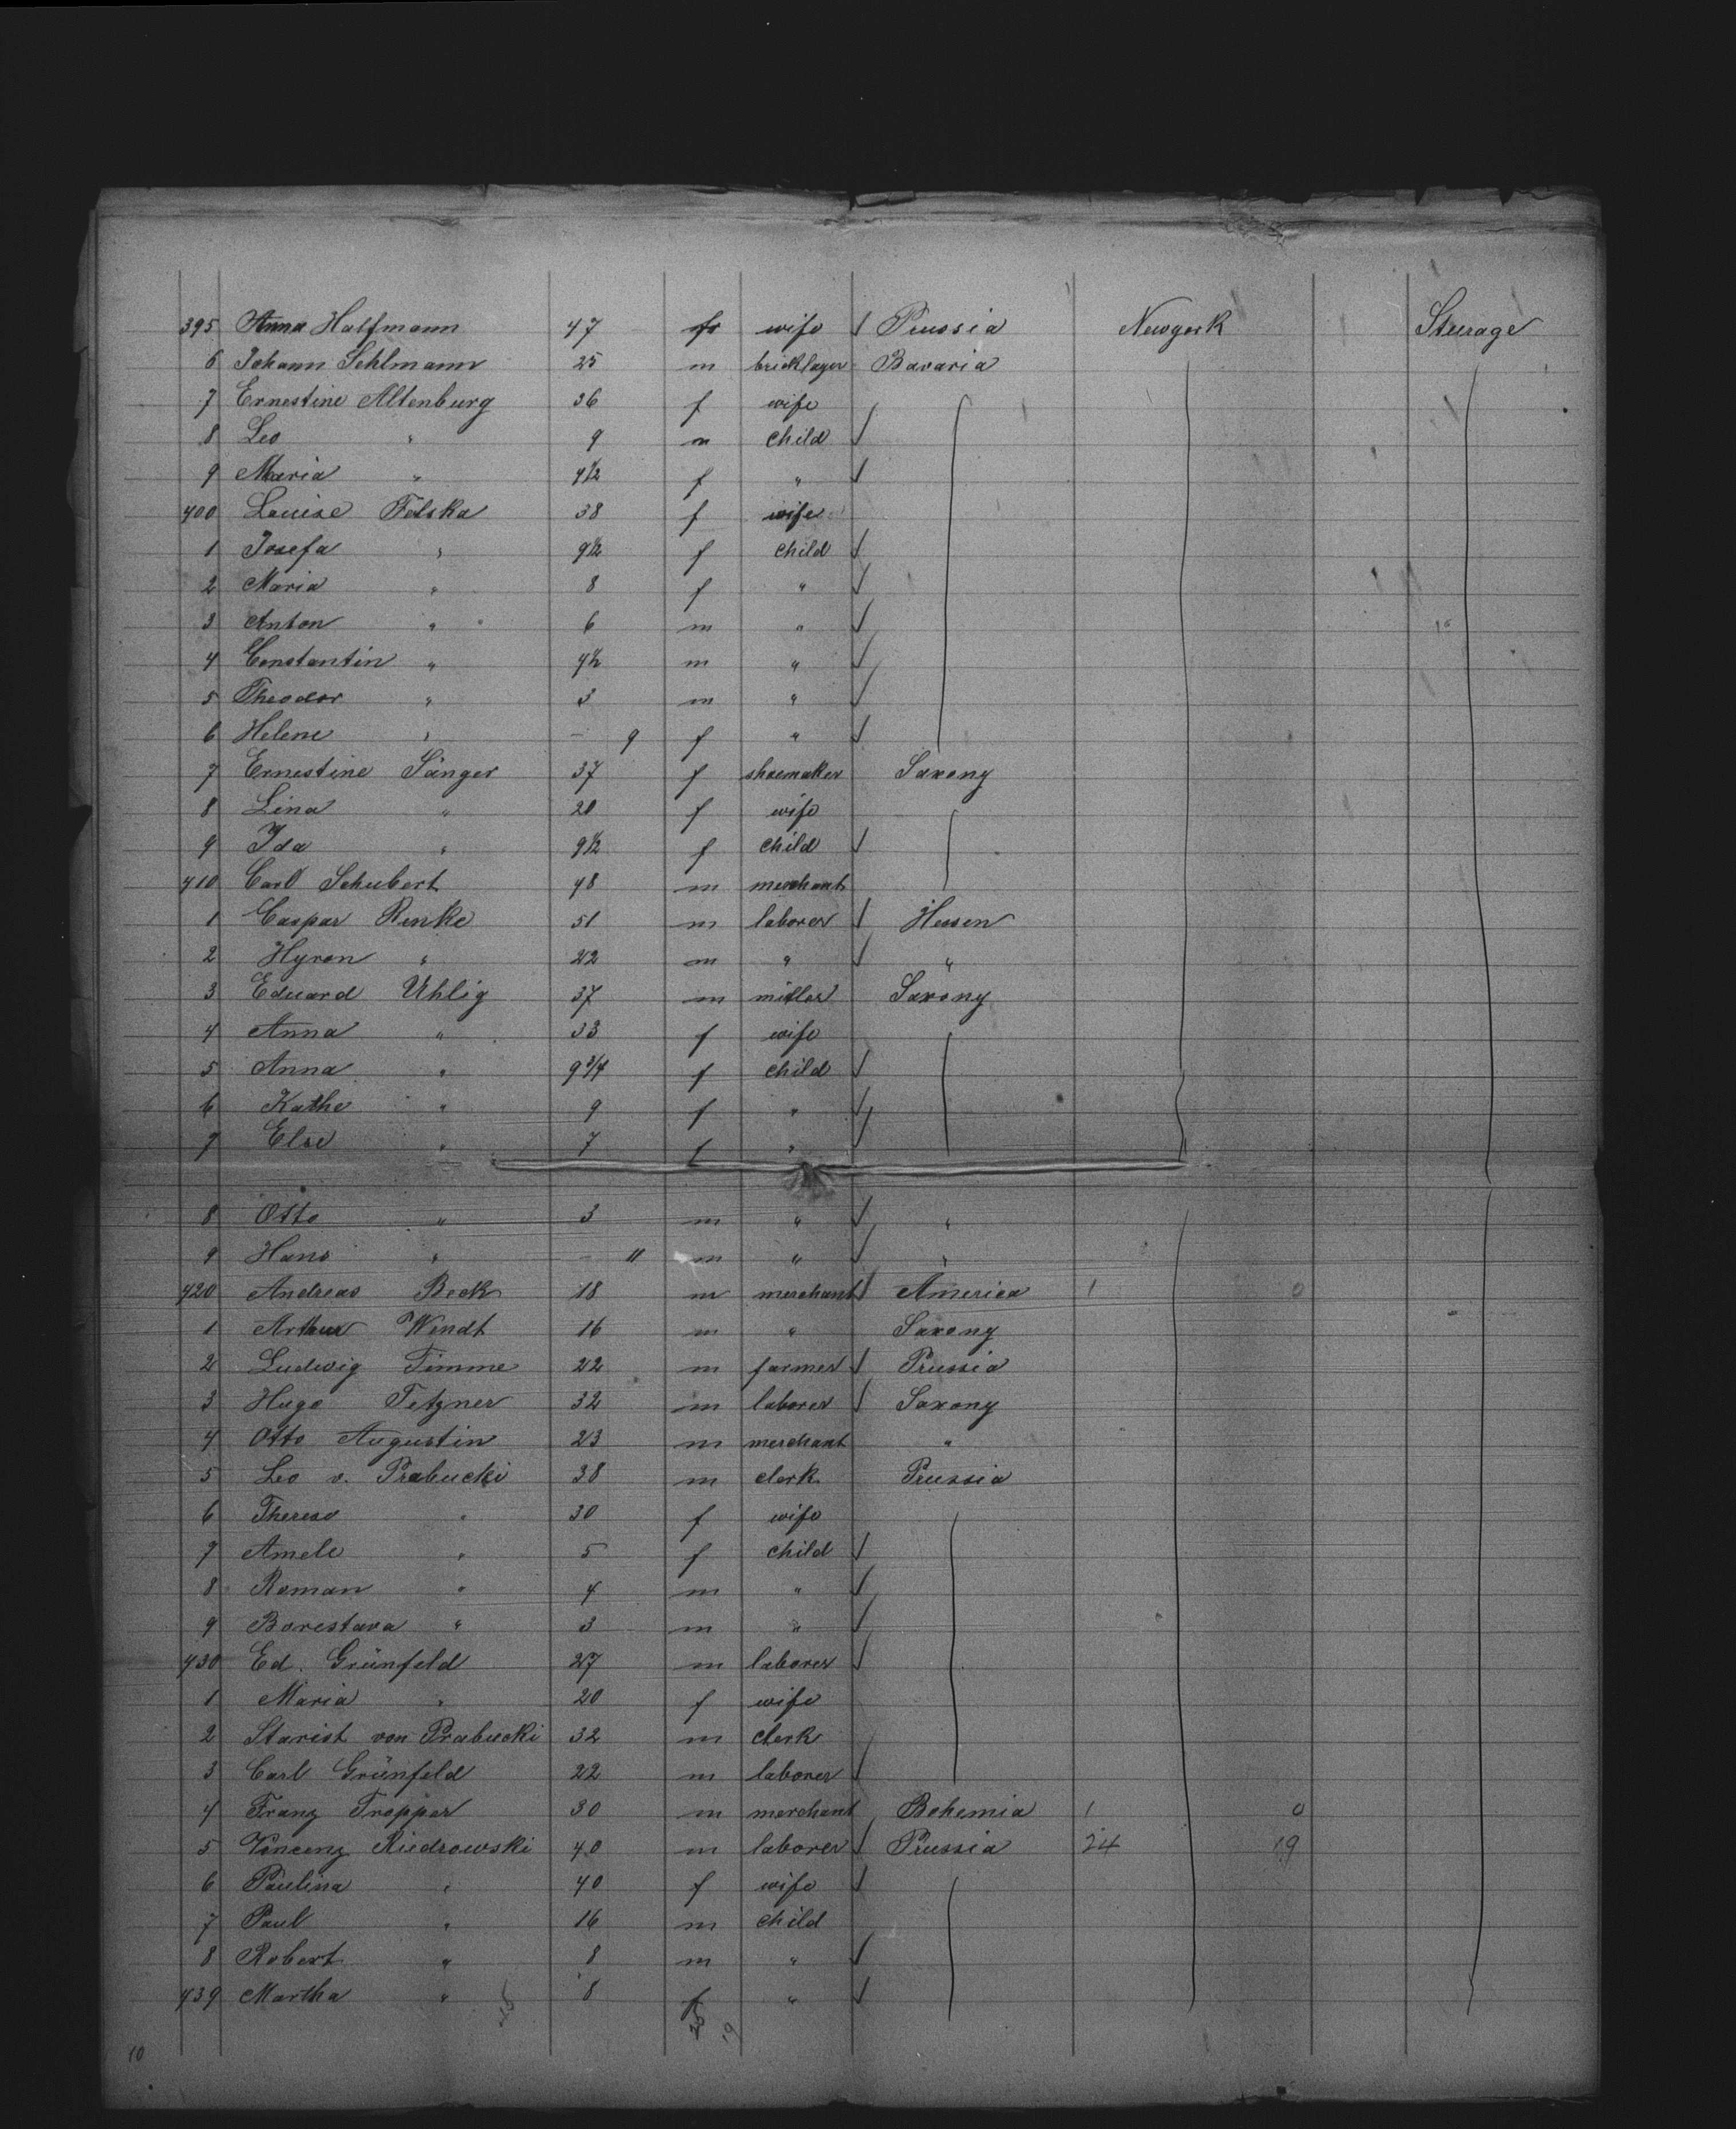 395 Anna Halfmann 47 f wife / Prussia Newyork Steerage
6 Johann Sehlmann 25 m bricklayer Bavaria
7 Ernestine Altenburg 36 f wife
8 Leo " 9 m child /
9 Maria " 4½ f " /
400 Louise Felska 38 f wife
1 Josefa " 9½ f child /
2 Maria " 8 f " /
3 Anton " 6 m " /
4 Constantin " 4½ m " /
5 Theodor " 3 m " /
6 Helene " – 9 f " /
7 Ernestine Sänger 37 f shoemaker Saxony
8 Lina " 20 f wife
9 Ida " 9½ f child /
410 Carl Schubert 48 m merchant
1 Caspar Renke 51 m laborer / Hessen
2 Hyron " 22 m " / "
3 Eduard Uhlig 37 m miller Saxony
4 Anna " 33 f wife
5 Anna " 9¾ f child /
6 Kathe " 9 f " /
7 Else " 7 f " /
8 Otto " 3 m " / "
9 Hans " – 11 m " / "
420 Andreas Beck 18 m merchant / America 1 0
1 Arthur Wendt 16 m " Saxony
2 Ludwig Timme 22 m farmer / Prussia
3 Hugo Tetzner 32 m laborer / Saxony
4 Otto Augustin 23 m merchant "
5 Leo v. Prabucki 38 m clerk Prussia
6 Therese " 30 f wife
7 Amele " 5 f child /
8 Roman " 4 m " /
9 Borestava " 3 m " /
430 Ed. Grünfeld 27 m laborer /
1 Maria " 20 f wife
2 Starist von Prabucki 32 m clerk
3 Carl Grünfeld 22 m laborer /
4 Franz Tropper 30 m merchant Bohemia 1 0
5 Vincenz Riedrowski 40 m laborer / Prussia 24 19
6 Paulina " 40 f wife /
7 Paul " 16 m child
8 Robert " 8 m " /
439 Martha " 8 f " /
19
10